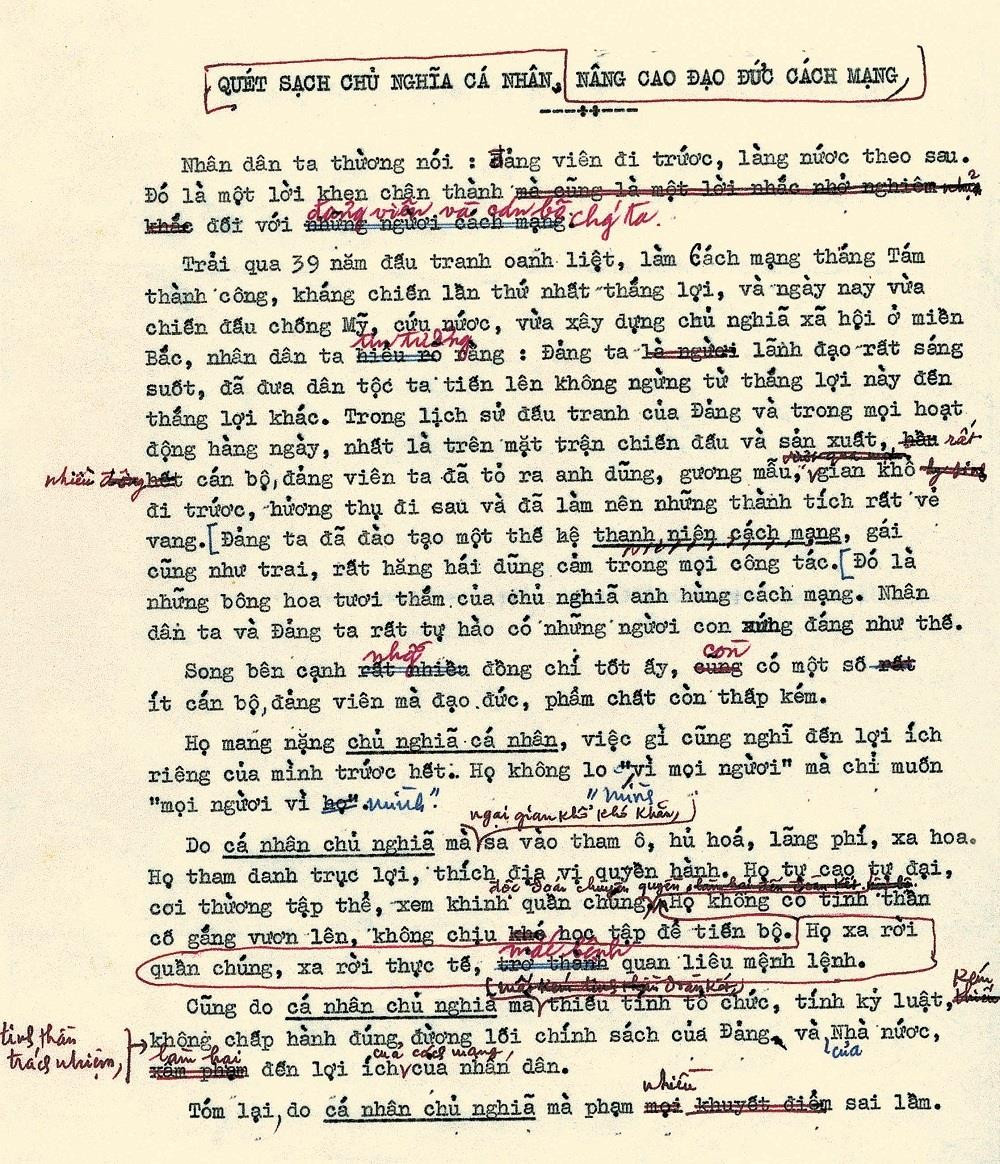 QUÉT SẠCH CHỦ NGHĨA CÁ NHÂN, NÂNG CAO ĐẠO ĐỨC CÁCH MẠNG,
Nhân dân ta thường nói : Đảng viên đi trước, làng nước theo sau.
Đó là một lời khen chân thành mà cũng là một lời nhắc nhở nghiêm
đảng viên và cán bộ chg ta.
khắc đối với những người cách mạng.
Trải qua 39 năm đấu tranh oanh liệt, làm Cách mạng tháng Tám
thành công, kháng chiến lần thứ nhất thắng lợi, và ngày nay vừa
chiến đấu chống Mỹ, cứu nước, vừa xây dựng chủ nghiã xã hội ở miền
tin tưởng
Bắc, nhân dân ta hiểu rõ rằng : Đảng ta là người lãnh đạo rất sáng
suốt, đã đưa dân tộc ta tiến lên không ngừng từ thắng lợi này đến
thắng lợi khác. Trong lịch sử đấu tranh của Đảng và trong mọi hoạt
động hàng ngày, nhất là trên mặt trận chiến đấu và sản xuất, hầu rất
nhiều hết cán bộ, đảng viên ta đã tỏ ra anh dũng, gương mẫu, gian khổ
đi trước, hưởng thụ đi sau và đã làm nên những thành tích rất vẻ
vang. [Đảng ta đã đào tạo một thế hệ thanh niên cách mạng, gái
cũng như trai, rất hăng hái dũng cảm trong mọi công tác. [Đó là
những bông hoa tươi thắm của chủ nghiã anh hùng cách mạng. Nhân
dân ta và Đảng ta rất tự hào có những người con xứng đáng như thế.
những còn
Song bên cạnh rất nhiều đồng chí tốt ấy, cũng có một số rất
ít cán bộ, đảng viên mà đạo đức, phẩm chất còn thấp kém.
Họ mang nặng chủ nghiã cá nhân, việc gì cũng nghĩ đến lợi ích
riêng của mình trước hết. Họ không lo "vì mọi người" mà chỉ muốn
"mình
"mọi người vì họ". mình".
ngại gian khổ khó khăn,
Do cá nhân chủ nghiã mà sa vào tham ô, hủ hoá, lãng phí, xa hoa.
Họ tham danh trục lợi, thích địa vị quyền hành. Họ tự cao tự đại,
độc đoán chuyên quyền,
coi thường tập thể, xem khinh quần chúng. Họ không có tinh thần
cố gắng vươn lên, không chịu khó học tập để tiến bộ. Họ xa rời
mắc bệnh
quần chúng, xa rời thực tế, trở thành quan liêu mệnh lệnh.
mất đoàn kết,
Cũng do cá nhân chủ nghiã mà thiếu tính tổ chức, tính kỷ luật, kém
tinh thần
trách nhiệm,
không chấp hành đúng đường lối chính sách của Đảng, và của Nhà nước,
làm hại của cách mạng,
xâm phạm đến lợi ích của nhân dân.
nhiều
Tóm lại, do cá nhân chủ nghiã mà phạm mọi khuyết điểm sai lầm.